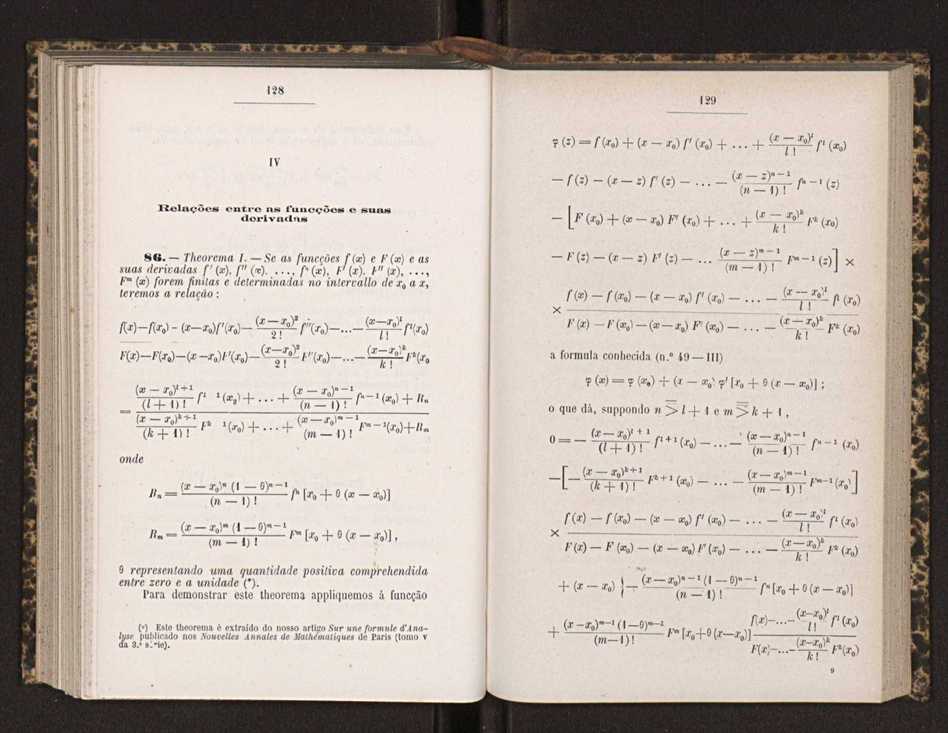 128
IV
Relações entre as funcções e suas
derivadas
86. — Theorema I. — Se as funcções f (x) e F (x) e as
suas derivadas f′ (x), f″ (x), ...., fⁿ (x), F′ (x), F″ (x), ...,
Fᵐ (x) forem finitas e determinadas no intervallo de x₀ a x,
teremos a relação:
f(x)—f(x₀) - (x—x₀)f′(x₀)— (x—x₀)²/2! f″(x₀)—...— (x—x₀)ˡ/l! fˡ(x₀)
F(x)—F(x₀)—(x—x₀)F′(x₀)— (x—x₀)²/2! F″(x₀)—...— (x—x₀)ᵏ/k! Fᵏ(x₀
= (x — x₀)ˡ⁺¹/(l + 1)! fˡ ¹(x₀) + ... + (x — x₀)ⁿ⁻¹/(n — 1)! fⁿ⁻¹ (x₀) + Rₙ
(x — x₀)ᵏ⁺¹/(k + 1)! Fᵏ ¹(x₀) + ... + (x — x₀)ᵐ⁻¹/(m — 1)! Fᵐ⁻¹(x₀)+Rₘ
onde
Rₙ = (x — x₀)ⁿ (1 — θ)ⁿ⁻¹/(n — 1)! fⁿ [x₀ + θ (x — x₀)]
Rₘ = (x — x₀)ᵐ (1 — θ)ᵐ⁻¹/(m — 1)! Fᵐ [x₀ + θ (x — x₀)],
θ representando uma quantidade positiva comprehendida
entre zero e a unidade (*).
Para demonstrar este theorema appliquemos á funcção
(*) Este theorema é extraido do nosso artigo Sur une formule d'Ana-
lyse publicado nos Nouvelles Annales de Mathématiques de Paris (tomo v
da 3.ª s.ᵉie).
129
φ (z) = f (x₀) + (x — x₀) f′ (x₀) + ... + (x — x₀)ˡ/l! fˡ (x₀)
— f (z) — (x — z) f′ (z) — ... — (x — z)ⁿ⁻¹/(n — 1)! fⁿ⁻¹ (z)
— [F (x₀) + (x — x₀) F′ (x₀) + ... + (x — x₀)ᵏ/k! Fᵏ (x₀)
— F (z) — (x — z) F′ (z) — ... (x — z)ᵐ⁻¹/(m — 1)! Fᵐ⁻¹ (z)] ×
× f (x) — f (x₀) — (x — x₀) f′ (x₀) — ... — (x — x₀)ˡ/l! fˡ (x₀)
F (x) — F (x₀) — (x — x₀) F′ (x₀) — ... — (x — x₀)ᵏ/k! Fᵏ (x₀)
a formula conhecida (n.º 49 — III)
φ (x) = φ (x₀) + (x — x₀) φ′ [x₀ + θ (x — x₀)];
o que dá, suppondo n ⋝ l + 1 e m ⋝ k + 1,
0 = — (x — x₀)ˡ⁺¹/(l + 1)! fˡ⁺¹ (x₀) — ... — (x — x₀)ⁿ⁻¹/(n — 1)! fⁿ⁻¹ (x₀)
— [— (x — x₀)ᵏ⁺¹/(k + 1)! Fᵏ⁺¹ (x₀) — ... — (x — x₀)ᵐ⁻¹/(m — 1)! Fᵐ⁻¹(x₀)]
× f (x) — f (x₀) — (x — x₀) f′ (x₀) — ... — (x — x₀)ˡ/l! fˡ (x₀)
F (x) — F (x₀) — (x — x₀) F′ (x₀) — ... — (x — x₀)ᵏ/k! Fᵏ (x₀)
+ (x — x₀) { — (x — x₀)ⁿ⁻¹ (1 — θ)ⁿ⁻¹/(n — 1)! fⁿ [x₀ + θ (x — x₀)]
+ (x — x₀)ᵐ⁻¹ (1 — θ)ᵐ⁻¹/(m—1)! Fᵐ [x₀+θ (x—x₀)] f(x)—...— (x—x₀)ˡ/l! fˡ (x₀)
F(x)—...— (x—x₀)ᵏ/k! Fᵏ(x₀)
9